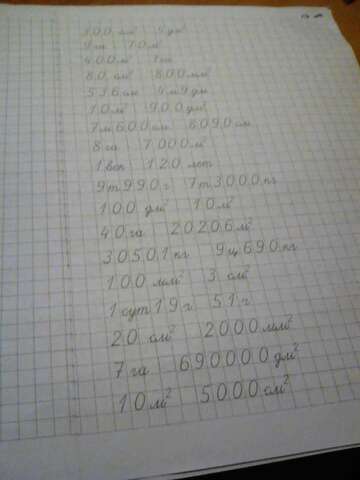 300 см² 5 дм²
9 га 10 м²
400 м² 1 га
80 см² 800 мм²
536 см 4 м 9 дм
10 м² 900 дм²
7 м 600 см 8090 см
8 га 7000 м²
1 век 120 лет
9 т 990 г 7 т 3000 кг
100 дм² 10 м²
40 га 20206 м²
30501 кг 9 ц 690 кг
100 мм² 3 см²
1 сут 19 г 51 г
20 см² 2000 мм²
7 га 690000 дм²
10 м² 5000 см²